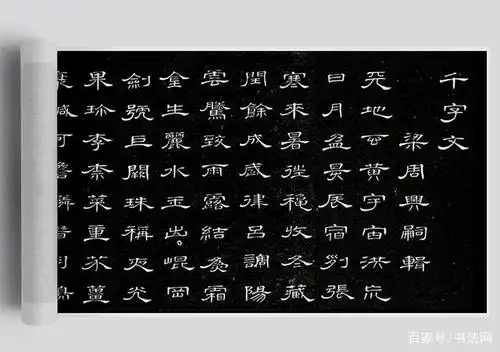 千字文
梁周興嗣輯
天地玄黃宇宙洪荒
日月盈昃辰宿列張
寒來暑往穐收冬藏
閏餘成歲律呂調陽
雲騰致雨露結為霜
金生麗水玉出崐岡
劍號巨闕珠稱夜光
果珍李柰菜重芥薑
百家号/书法网